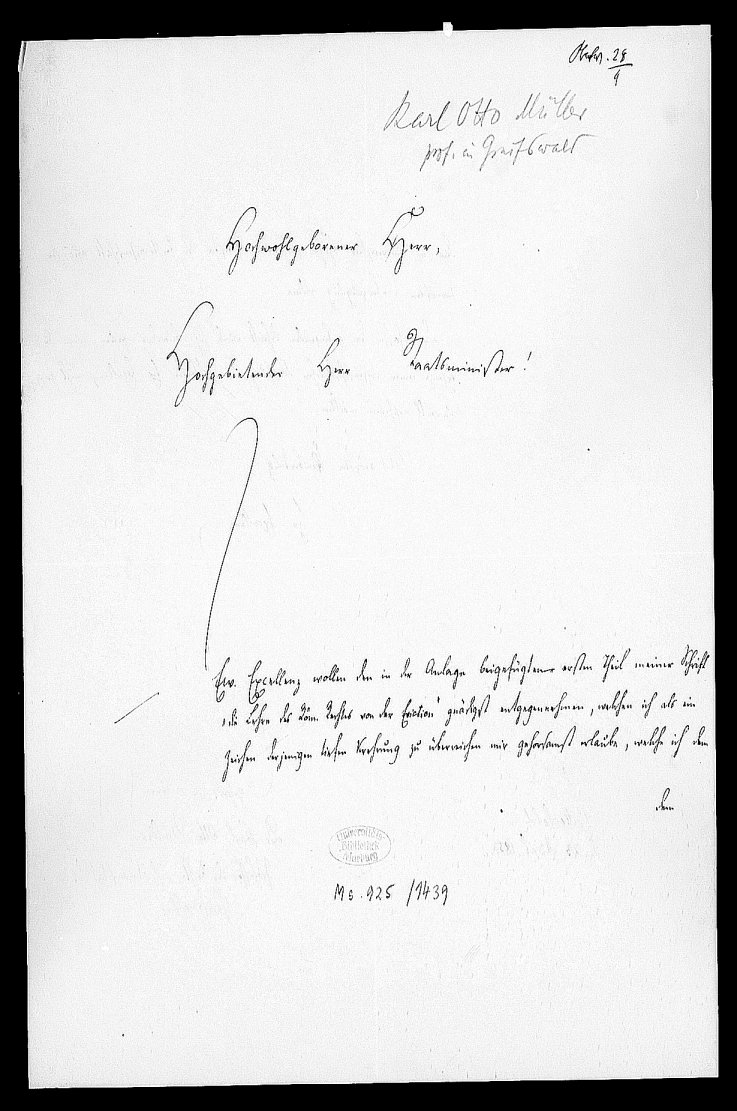 28
9
Karl Otto Müller
prof. in Greifswald
Hochwohlgeborener Herr,
Hochgebietender Herr Staatsminister!
Ew. Excellenz wollen den in der Anlage beigefügten ersten Theil meiner Schrift
„die Lehre des Röm. Rechtes von der Eviction“ gnädigst entgegennehmen, welchen ich als ein
Zeichen derjenigen tiefen Verehrung zu überreichen mir gehorsamst erlaube, welche ich dem
dem
Universitäts
Bibliothek
Marburg
Ms. 925 /1439